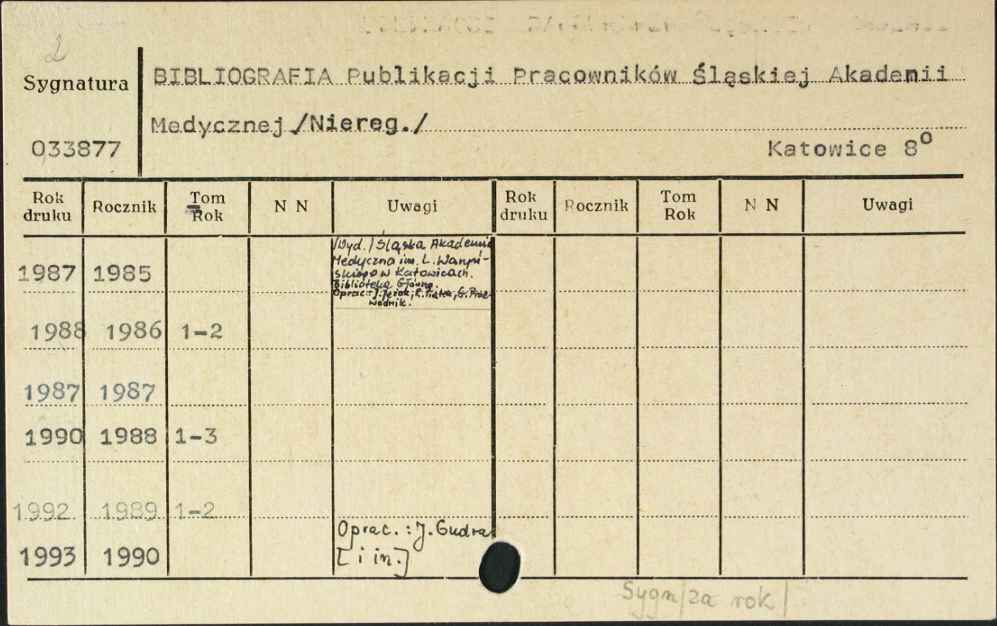 2
Sygnatura
BIBLIOGRAFIA Publikacji Pracowników Śląskiej Akademii
Medycznej /Niereg./
033877
Katowice 8º
Rok druku Rocznik Tom Rok N N Uwagi Rok druku Rocznik Tom Rok N N Uwagi
/Wyd./ Śląska Akademia
Medyczna im. L. Waryń-
skiego w Katowicach.
Biblioteka Główna.
Oprac.: J. R. Piątek, G. Prze-
wodnik.
1987 1985
1988 1986 1-2
1987 1987
1990 1988 1-3
1992 1989 1-2
Oprac. : J. Gudra
1993 1990 [i in.]
Sygn/za rok/